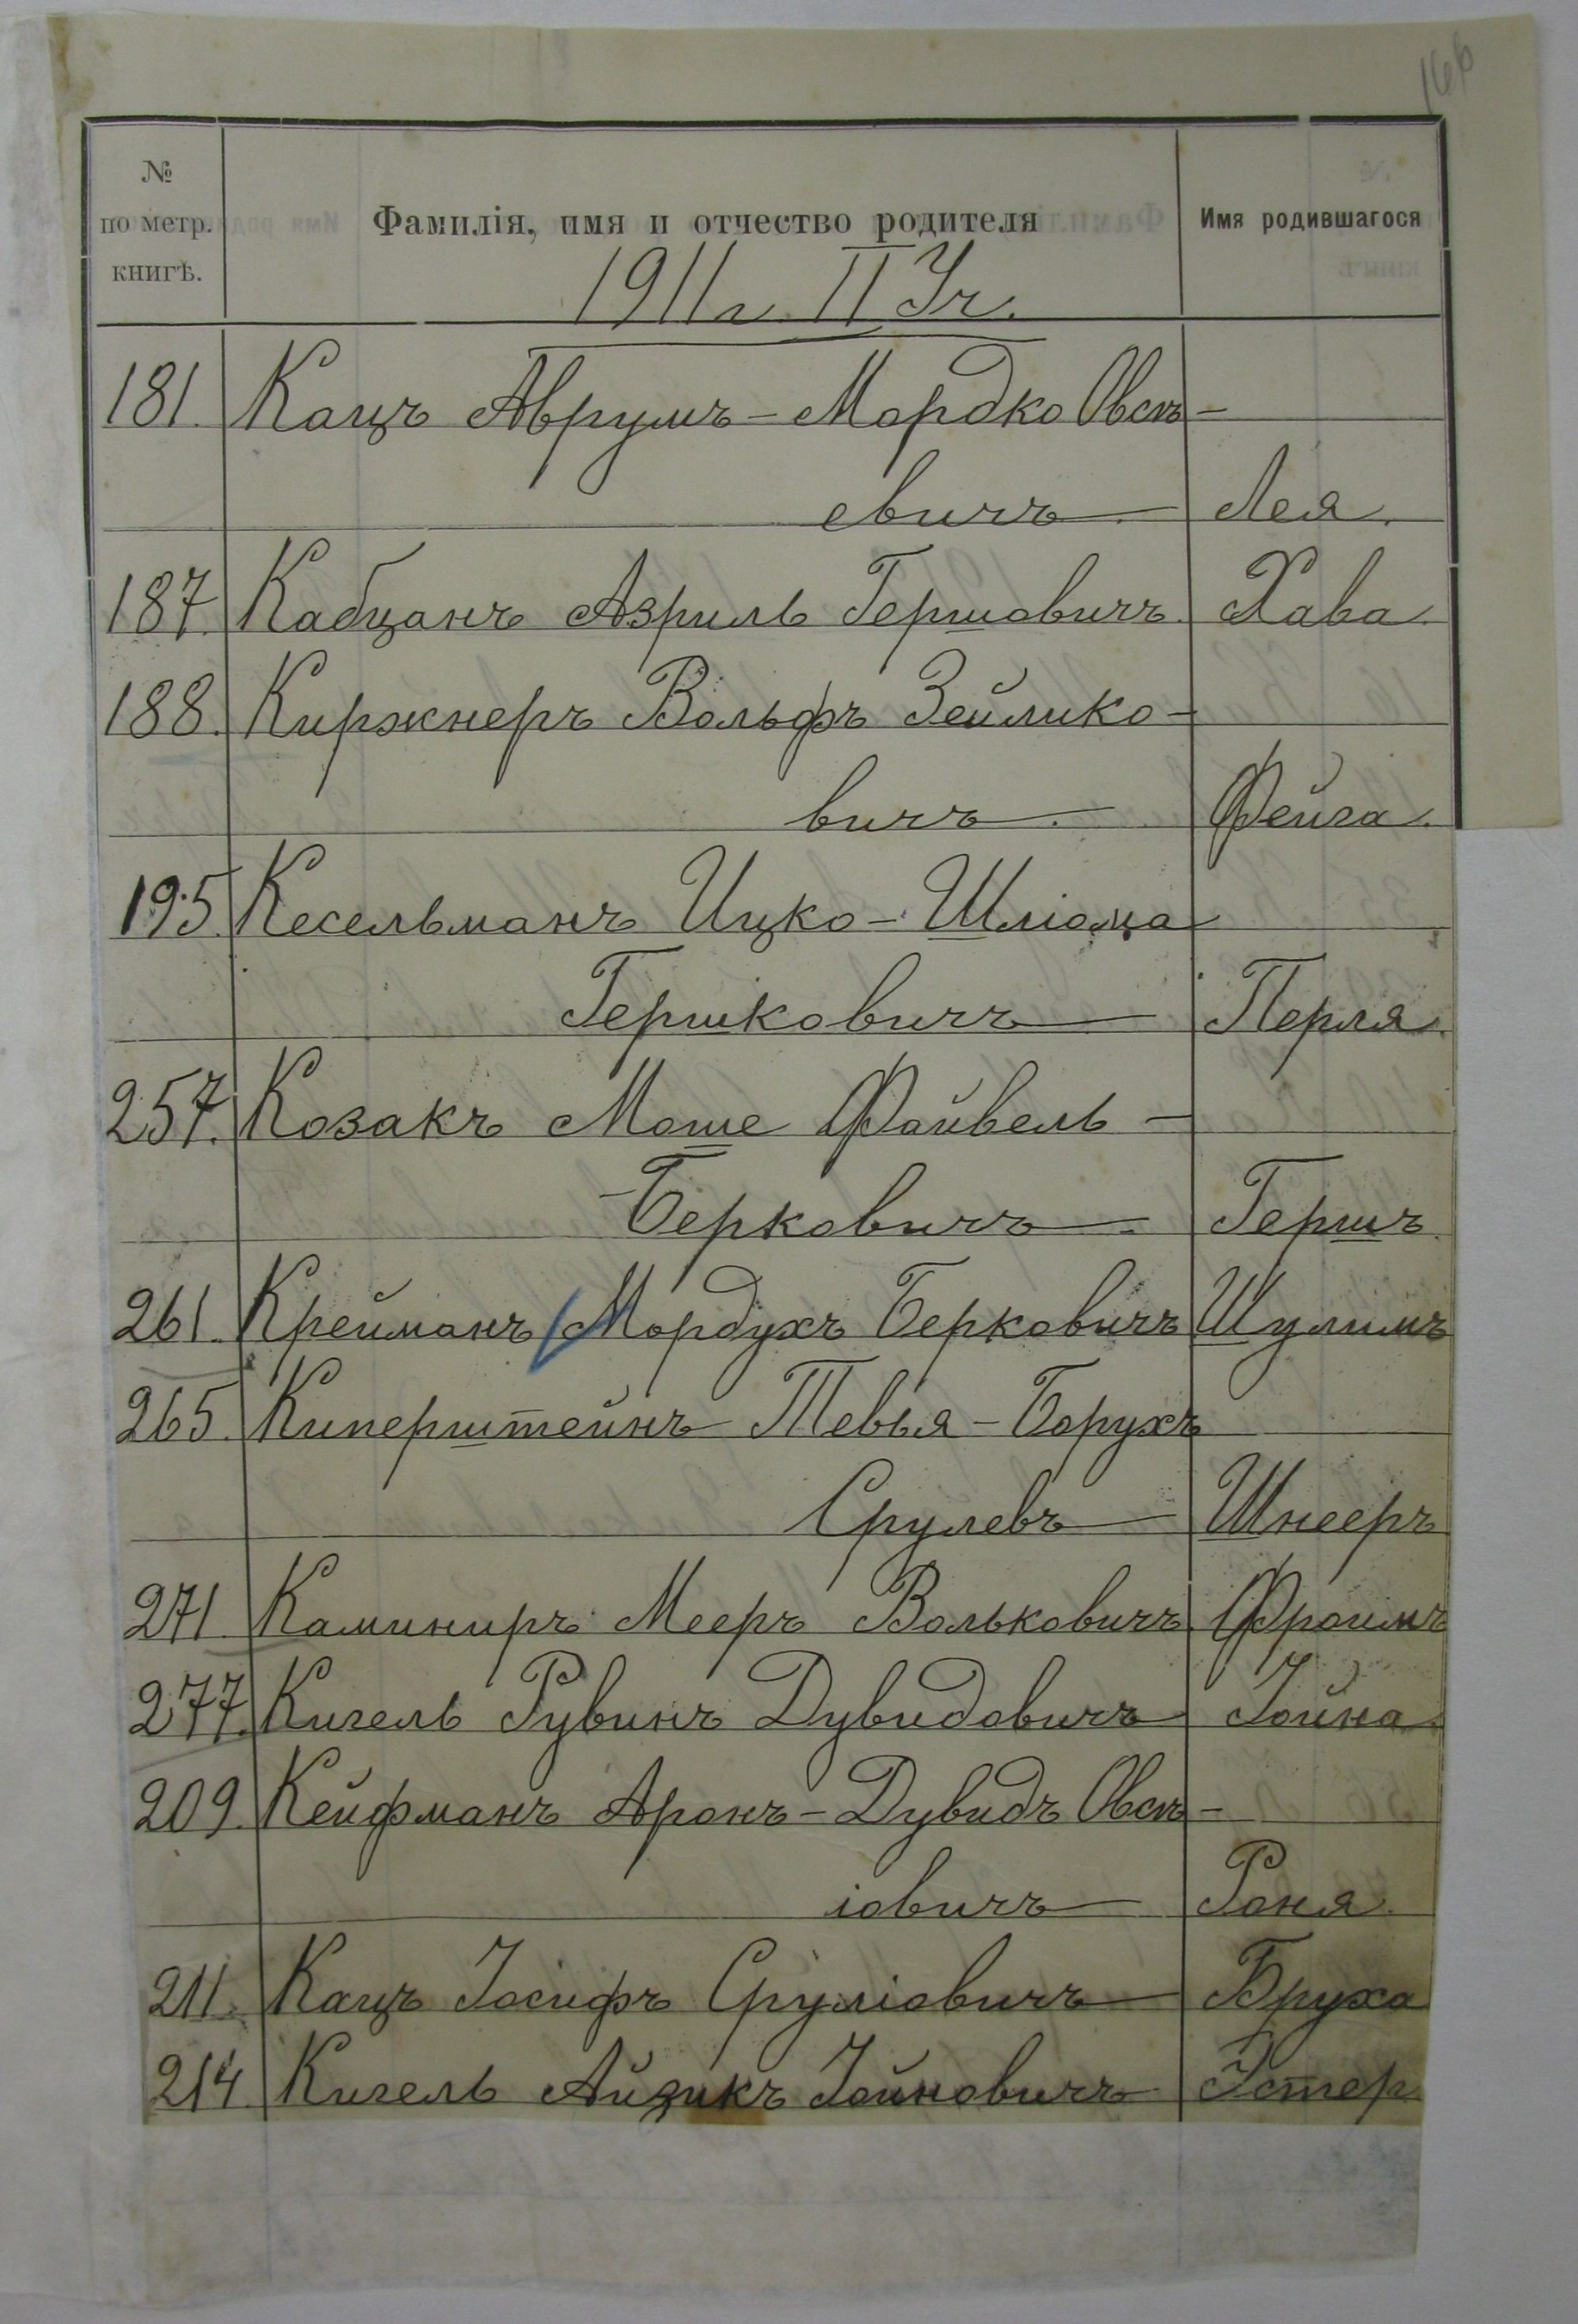 166
№ по метр. книгѣ. Фамилія, имя и отчество родителя Имя родившагося
1911 г. II Уч.
181. Кацъ Аврумъ-Мордко Овсѣ-
евичъ Лея.
187. Кабцанъ Азриль Гершовичъ. Хава.
188. Киржнеръ Вольфъ Зейлико-
вичъ. Фейга.
195. Кесельманъ Ицко-Шліома
Гершковичъ Перля.
257. Козакъ Моше Файвель-
-Берковичъ. Гершъ.
261. Крейманъ Мордухъ Берковичъ Шулимъ
265. Киперштейнъ Тевья-Борухъ
Срулевъ Шнееръ
271. Каминиръ Мееръ Вольковичъ. Фроимъ
277. Кигель Рувинъ Дувидовичъ Іойна.
209. Кейфманъ Аронъ-Дувидъ Овсѣ-
іовичъ Роня.
211. Кацъ Іосифъ Сруліовичъ Бруха
214. Кигель Айзикъ Іойновичъ Эстер.